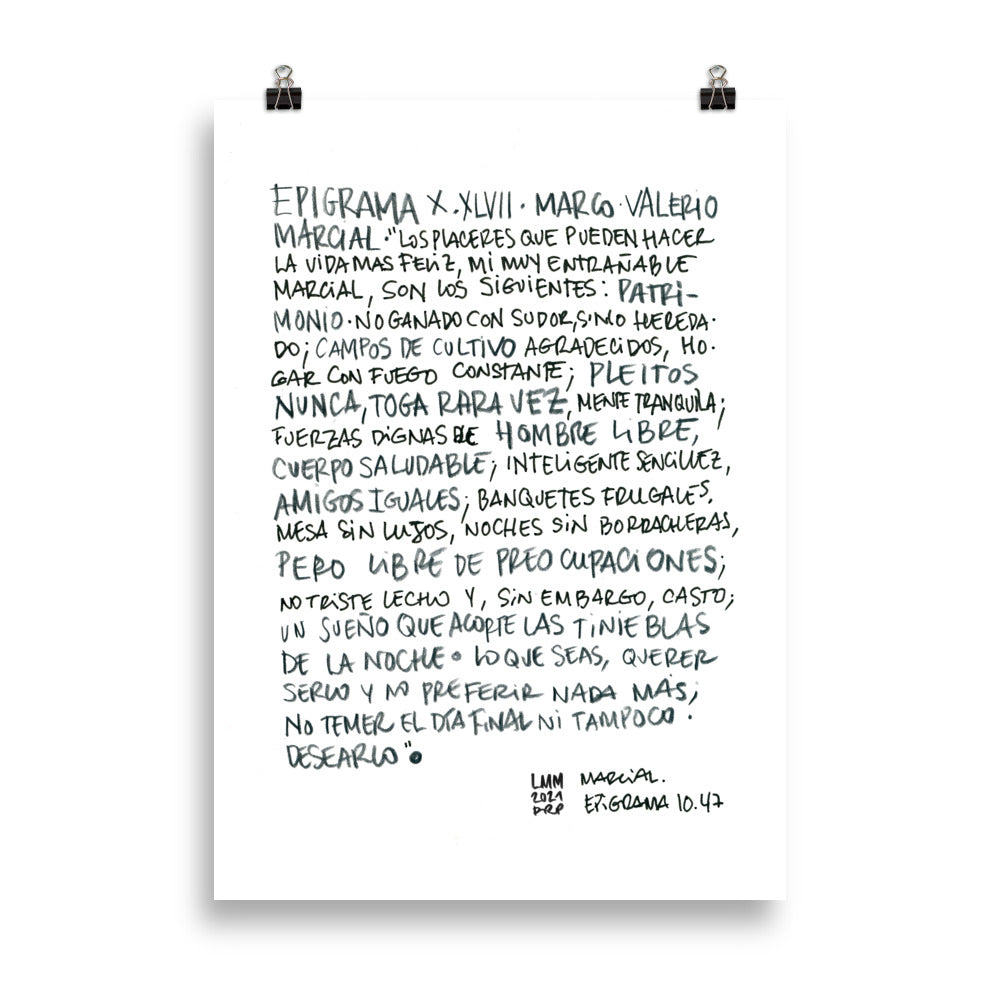 EPIGRAMA X.XLVII. MARCO VALERIO
MARCIAL. "LOS PLACERES QUE PUEDEN HACER
LA VIDA MAS FELIZ, MI MUY ENTRAÑABLE
MARCIAL, SON LOS SIGUIENTES: PATRI-
MONIO. NO GANADO CON SUDOR, SINO HEREDA-
DO; CAMPOS DE CULTIVO AGRADECIDOS, HO-
GAR CON FUEGO CONSTANTE; PLEITOS
NUNCA, TOGA RARA VEZ, MENTE TRANQUILA;
FUERZAS DIGNAS DE HOMBRE LIBRE,
CUERPO SALUDABLE; INTELIGENTE SENCILLEZ,
AMIGOS IGUALES; BANQUETES FRUGALES,
MESA SIN LUJOS, NOCHES SIN BORRACHERAS,
PERO LIBRE DE PREOCUPACIONES;
NO TRISTE LECHO Y, SIN EMBARGO, CASTO;
UN SUEÑO QUE ACORTE LAS TINIEBLAS
DE LA NOCHE. LO QUE SEAS, QUERER
SERLO Y NO PREFERIR NADA MÁS;
NO TEMER EL DÍA FINAL NI TAMPOCO.
DESEARLO".
LMM MARCIAL.
2021 EPIGRAMA 10.47